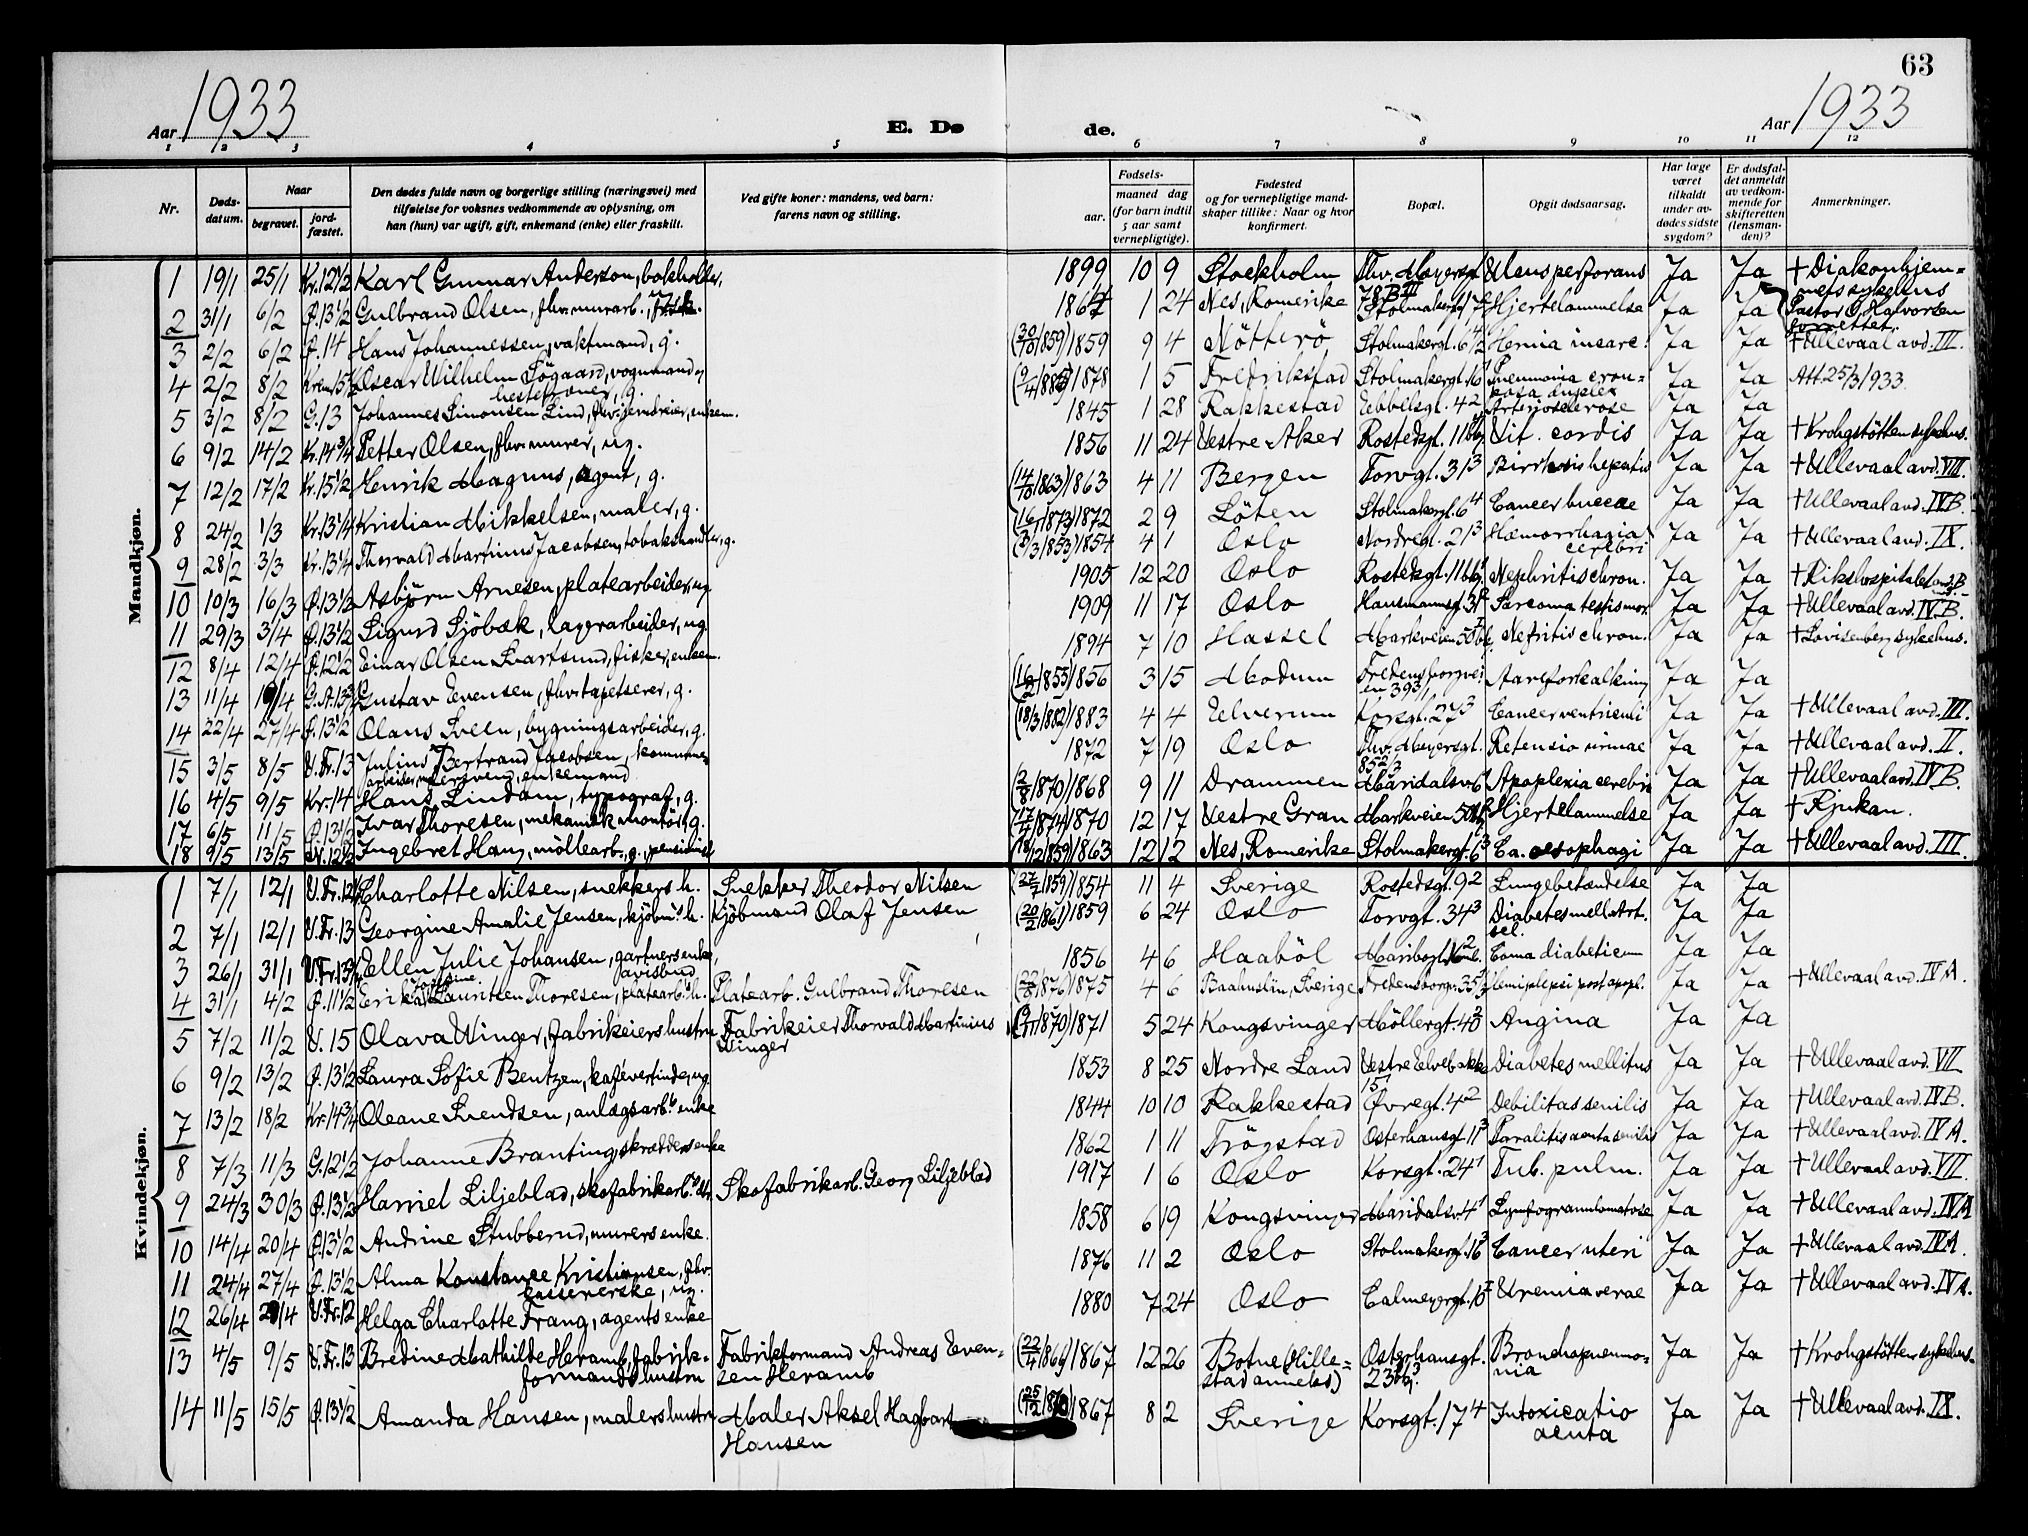 63
Aar 1933
E. Dø
de.
Aar 1933
1 2 3 4 5 6 7 8 9 10 11 12
Nr.
Døds-datum.
Naar
begravet.
jord-fæstet.
Den dødes fulde navn og borgerlige stilling (næringsvei) med
tilføielse for voksnes vedkommende av oplysning, om
han (hun) var ugift, gift, enkemand (enke) eller fraskilt.
Ved gifte koner: mandens, ved barn:
farens navn og stilling.
Fødsels-
aar.
maaned dag
(for barn indtil
5 aar samt
vernepligtige).
Fødested
og for vernepligtige mand-
skaper tillike: Naar og hvor
konfirmert.
Bopæl.
Opgit dødsaarsag.
Har læge
været
tilkaldt
under av-
dødes sidste
sygdom?
Er dødsfal-
det anmeldt
av vedkom-
mende for
skifteretten
(lensman-
den)?
Anmerkninger.
Mandkjøn.
1 19/1 25/1 Kr. 12 1/2 Karl Gunnar Anderson, bokholder, 1899 10 9 Stockholm Thv. Meyersgt. 78 B III Ulcus perforans Ja Ja † Diakonhjem-
mets sykehus
2 31/1 6/2 Ø. 13 1/2 Gulbrand Olsen, fhv. murarb., 1864 1 24 Nes, Romerike Stolmakergt. 17 Hjertelammelse Ja Ja Pastor O. Halvorsen
forrettet.
3 2/2 6/2 Ø. 14 Hans Johannessen, vaktmand, g. (30/10 1859) 1859 9 4 Nötterö Stolmakergt. 6 Hernia incarc. Ja Ja † Ullevaal avd. III.
4 2/2 8/2 Krem. 15 Oscar Wilhelm Sögaard, vognmand og
hesteproner, g. 1878 1 5 Fredrikstad Stolmakergt. 16 Pneumonia croup-
posa duplex Ja Ja Att. 25/3 1933.
5 3/2 8/2 G. 13 Johannes Simonsen Lind, fhv. jerndreier, enkem. 1845 1 28 Rakkestad Tebbelsgt. 4 2 Arteriosclerose Ja Ja
6 9/2 14/2 Kr. 14 3/4 Petter Olsen, fhv. murer, ug. 1856 11 24 Vestre Aker Rostedsgt. 11 Vit. cordis Ja Ja † Krohgstötten sykehus.
7 12/2 17/2 Kr. 15 1/2 Henrik Magnus, agent, g. (14/10 1863) 1863 4 11 Bergen Torvgt. 31 3 Cirrhosis hepatis Ja Ja † Ullevaal avd. VIII.
8 24/2 1/3 Kr. 13 1/4 Kristian Mikkelsen, maler, g. 1872 2 9 Löten Stolmakergt. 6 4 Cancer buccae Ja Ja † Ullevaal avd. IV B.
9 28/2 3/3 Kr. 13 1/4 Thorvald Martinius Jacobsen, tobakshandler, g. (3/3 1853) 1854 4 1 Oslo Nordregt. 21 3 Hæmorrhagia
cerebri Ja Ja † Ullevaal avd. IX.
10 10/3 16/3 Ø. 13 1/2 Asbjörn Arnesen, platearbeider, ug. 1905 12 20 Oslo Rostedsgt. 11 Nephritis chron. Ja Ja † Rikshospitalet avd. B
11 29/3 3/4 Ø. 13 1/2 Sigurd Sjöbæk, lagerarbeider, ug. 1909 11 17 Oslo Hausmannsgt. 31 Sarcoma testis mor. Ja Ja † Ullevaal avd. IV B.
12 8/4 12/4 Ø. 12 1/2 Einar Olsen Svartsund, fisker, enkem. 1894 7 10 Hassel Markveien 50 Nefritis chron. Ja Ja † Lovisenberg sykehus.
13 11/4 19/4 G. A. 13 Gustav Evensen, fhv. tapetserer, g. 1856 3 15 Modum Fredensborgvei-
en 39 3 Aareforkalkning Ja Ja
14 22/4 27/4 Ø. 13 1/2 Olaus Sveen, bygningsarbeider, g. (18/3 1882) 1883 4 4 Elverum Korsgt. 27 3 Cancer ventriculi Ja Ja † Ullevaal avd. III.
15 3/5 8/5 V. Fr. 13 Julius Bertrand Jacobsen, kommune-
arbeider, murersvend, enkemand 1872 7 19 Oslo Thv. Meyersgt.
Retensio urinae Ja Ja † Ullevaal avd. II.
16 4/5 9/5 Kr. 14 Hans Lindam, typograf, g. (2/8 1870) 1868 9 11 Drammen Maridalsv. 6 Apoplexia cerebri Ja Ja † Ullevaal avd. IV B.
17 6/5 11/5 Ø. 13 1/2 Ivar Thoresen, mekanisk montör, g. 1870 12 17 Vestre Gran Markveien 50 Hjertelammelse Ja Ja † Rjukan.
18 9/5 13/5 N. 12 1/2 Ingebret Haug, möllearb., g., pensionist (18/12 1859) 1863 12 12 Nes, Romerike Stolmakergt. 6 3 Ca. oesophagi Ja Ja † Ullevaal avd. III.
Kvindekjøn.
1 7/1 12/1 V. Fr. 12 Charlotte Nilsen, snekkers h. Snekker Theodor Nilsen (27/7 1859) 1854 11 4 Sverige Rostedsgt. 9 2 Lungebetændelse Ja Ja
2 7/1 12/1 V. Fr. 13 Georgine Amalie Jensen, kjöbm.s h. Kjöbmand Olaf Jensen (20/2 1861) 1859 6 24 Oslo Torvgt. 34 3 Diabetes mell. Art.
scl. Ja Ja
3 26/1 31/1 V. Fr. 13 Ellen Julie Johansen, gartners enke,
avisbud 1856 4 6 Haaböl Maribogt. Coma diabeticum Ja Ja
4 31/1 4/2 Ø. 11 1/2 Erika Josefine Lauritzen Thoresen, platearb.s h. Platearb. Gulbrand Thoresen 1875 4 6 Baahuslän, Sverige Fredensborgv. 35 Hemiplepsi post apopl. Ja Ja † Ullevaal avd. IV A.
5 7/2 11/2 V. 15 Olava Winger, fabrikeiers hustru Fabrikeier Thorvald Martinius
Winger (9/11 1870) 1871 5 24 Kongsvinger Möllergt. 40 2 Angina Ja Ja
6 9/2 13/2 Ø. 13 1/2 Laura Sofie Bentzen, kafévertinde, ug. 1853 8 25 Nordre Land Vestre Elvebakke
15 1 Diabetes mellitus Ja Ja † Ullevaal avd. VII
7 13/2 18/2 Kr. 14 3/4 Oleane Svendsen, anlægsarb.s enke 1844 10 10 Rakkestad Övregt. 4 2 Debilitas senilis Ja Ja † Ullevaal avd. IV B.
8 7/3 11/3 G. 12 1/2 Johanne Branting, skrædders enke 1862 1 11 Trögstad Osterhausgt. 11 3 Paralitis acuta senilis Ja Ja † Ullevaal avd. IV A.
9 24/3 30/3 Ø. 13 1/2 Harriet Liljeblad, skofabrikarb.s dtr. Skofabrikarb. Georg Liljeblad 1917 1 6 Oslo Korsgt. 24 1 Tub. pulm. Ja Ja † Ullevaal avd. VII.
10 14/4 20/4 Ø. 13 1/2 Andrine Stubberud, murers enke. 1858 6 19 Kongsvinger Maridalsv. 4 1 Lymfogranulomatose Ja Ja † Ullevaal avd. IV A
11 24/4 27/4 Ø. 13 1/2 Alma Konstance Kristiansen, fhv.
kassererske, ug. 1876 11 2 Oslo Stolmakergt. 16 3 Cancer uteri Ja Ja † Ullevaal avd. IV A.
12 26/4 29/4 V. Fr. 12 Helga Charlotte Frang, agents enke 1880 7 24 Oslo Calmeyergt. 10 Uremia verae Ja Ja † Ullevaal avd. IV A.
13 4/5 9/5 V. Fr. 13 Bredine Mathilde Heramb, fabrik-
formands hustru Fabrikformand Andreas Even-
sen Heramb (22/4 1866) 1867 12 26 Botne (Hille-
stad anneks) Osterhausgt.
23 Bronchopneumo-
nia Ja Ja † Krohgstötten sykehus.
14 11/5 15/5 Ø. 13 1/2 Amanda Hansen, malers hustru Maler Aksel Hagbart
Hansen 1867 8 2 Sverige Korsgt. 17 4 Intoxicatio
acuta Ja Ja † Ullevaal avd. IX.